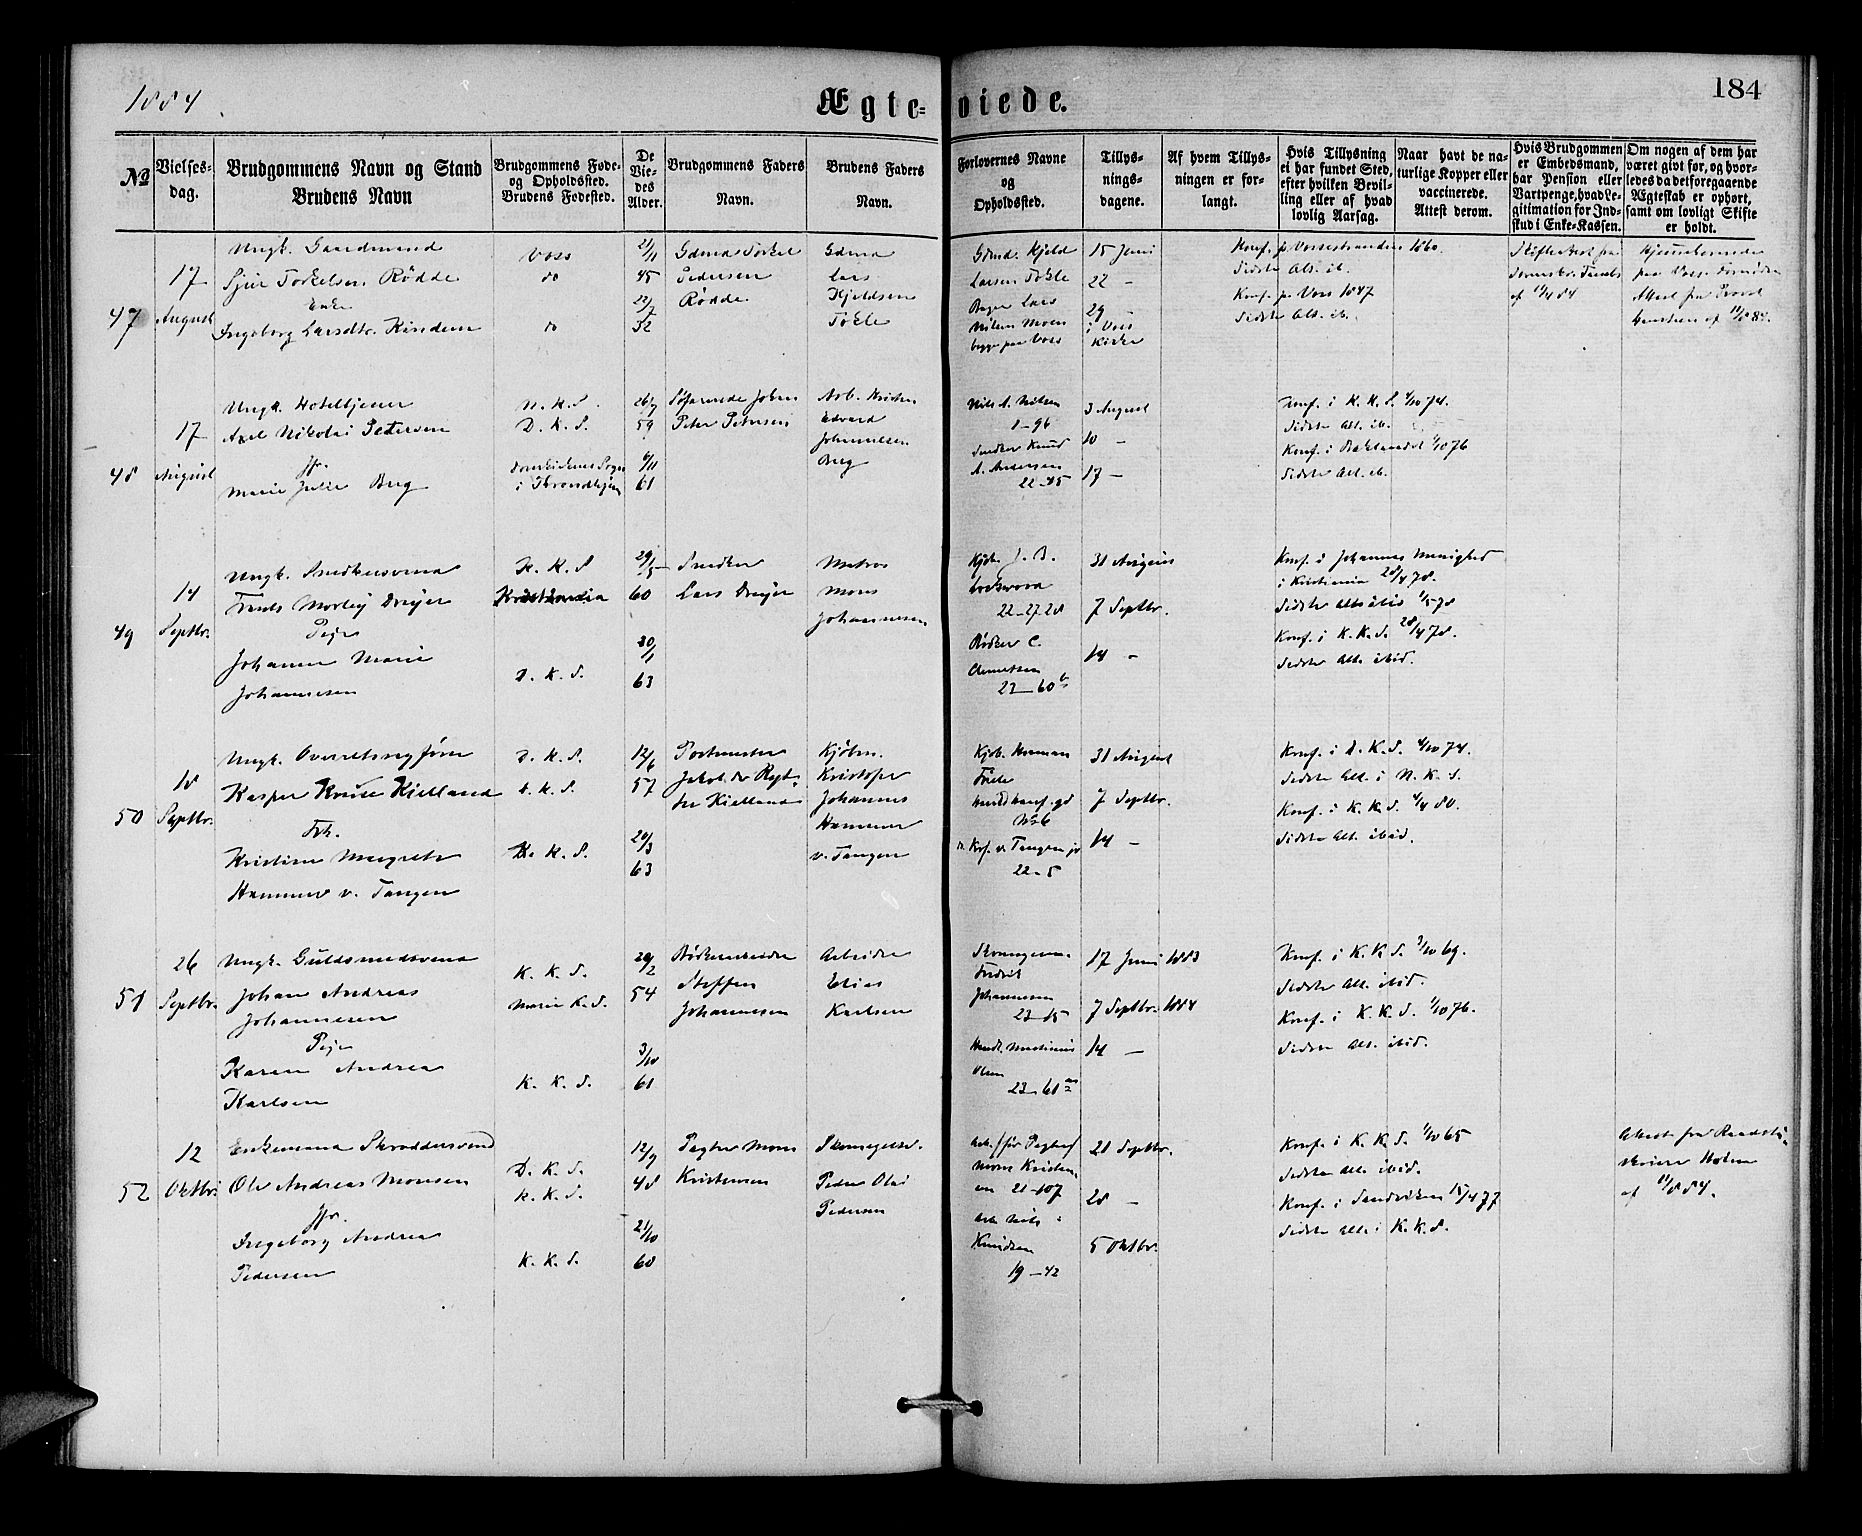 1884
Ægteviede.
184
No
Vielsesdag.
Brudgommens Navn og Stand
Brudens Navn
Brudgommens Føde-
og Opholdssted.
Brudens Fødested.
De
Vie-
des
Alder.
Brudgommens Faders
Navn.
Brudens Faders
Navn.
Forlovernes Navne
og
Opholdssted.
Tillys-
nings-
dagene.
Af hvem Tillys-
ningen er for-
langt.
Hvis Tillysning
ei har fundet Sted,
efter hvilken Bevil-
ling eller af hvad
lovlig Aarsag.
Naar havt de na-
turlige Kopper eller
vaccinerede.
Attest derom.
Hvis Brudgommen
er Embedsmand,
har Pension eller
Vartpenge, hvad Le-
gitimation for Ind-
skud i Enke-Kassen.
Om nogen af dem har
været gift før, og hvor-
ledes da det foregaaende
Ægteskab er ophørt,
samt om lovligt Skifte
er holdt.
47
17
August
Ungk. Gaardmand
Sjur Torkelsen Rødde
Enke
Ingeborg Larsdtr. Kinden
Voss
do
do
45
32
Gdmd Torkel
Pedersen
Rødde
Gdmd
Lars
Kjeldsen
Tokle
Gdmd. Kjeld
Larsen Tokle
Lars
Nilsen Moen
begge paa Voss
15 Juni
22 –
29 –
i Voss
Kirke
Konf. p. Vossestranden 1860.
Sidste Alt. ib.
Konf. p. Voss 1847
Sidste Alt. ib.
48
17
August
Ungk. Hoteltjener
Axel Nikolai Petersen
Jfr.
Marie Julie Berg
N. K. S.
D. K. S.
Domkirkens Sogn
i Throndhjem
26/7
59
6/11
61
Søfarende Johan
Peter Petersen
Arb. Kristen
Edvard
Johannesen
Berg
Nils A. Nilsen
1–96
Snedker Knud
A. Andersen
22–85
3 August
10 –
17 –
Konf. i K. K. S. 4/10 74.
Sidste Alt. ib.
Konf. i Baklandet 1/10 76
Sidste Alt. ib.
49
14
Septbr.
Ungk. Snedkersvend
Frants Dreyer
Pige
Johanne Marie
Johannesen
K. K. S
Kristiania
D. K. S.
29/5
60
20/1
63
Snedker
Lars Dreyer
Matros
Mons
Johannesen
Kjøb. J. B.
22–27.28
Bødker C.
23–60 b
31 August
7 Septbr.
14 –
Konf. i Johannes Menighed
i Kristiania 28/4 78.
Konf. i K. K. S. 28/4 78.
Sidste Alt. ibid.
50
18
Septbr.
Ungk. Overretssagfører
Kasper Kruse Kielland
Frk.
Kristine Margrete
Hammer v. Tangen
D. K. S.
D. K. S.
K. K. S.
12/6
57
20/3
63
Postmester
Jakob
Kielland
Kjøbm.
Kristofer
Johannes
Hammer
v. Tangen
Kjøb. Herman
Friele
v. Tangen jr
22–5
31 August
7 Septbr.
14 –
Konf. i D. K. S. 4/10 74.
Sidste Alt. i N. K. S.
Konf. i K. K. S. 4/4 80.
Sidste Alt. ibid.
51
26
Septbr.
Ungk. Guldsmedsvend
Johan Andreas
Johannesen
Pige
Karen Andrea
Karlsen
K. K. S.
Marie K. S.
K. K. S.
29/2
54
3/10
61
Bødkermester
Steffen
Johannesen
Arbeider
Elias
Karlsen
Fredrik
Johannesen
23–15
Handl. Martinius
Olsen
23–61
17 Juni 1883
7 Septbr. 1884
14 –
Konf. i K. K. S. 3/10 69.
Sidste Alt. ibid.
Konf. i K. K. S. 1/10 76.
Sidste Alt. ibid.
52
12
Oktbr.
Enkemand Skræddersvend
Ole Andreas Monsen
Jfr.
Ingeborg Andrea
Pedersen
D. K. S.
K. K. S.
K. K. S.
12/9
48
21/10
60
Pagter Mons
Kristensen
Peder Olai
Pedersen
Mons Kristen-
sen 21–107
Arb. Nils
Knudsen
19–42
21 Septbr.
28 –
5 Oktbr.
Konf. i K. K. S. 1/10 65
Sidste Alt. ibid.
Konf. i Sandviken 15/4 77
Sidste Alt. i K. K. S.
Attest fra Raadstu-
skriver Holm
af 11/8 84.